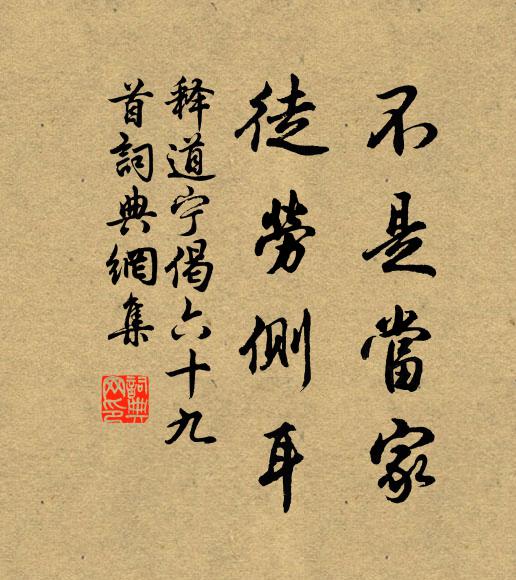 不是當家
徒勞側耳
释道宁偈六十九
首詞典網集
詞典
网印